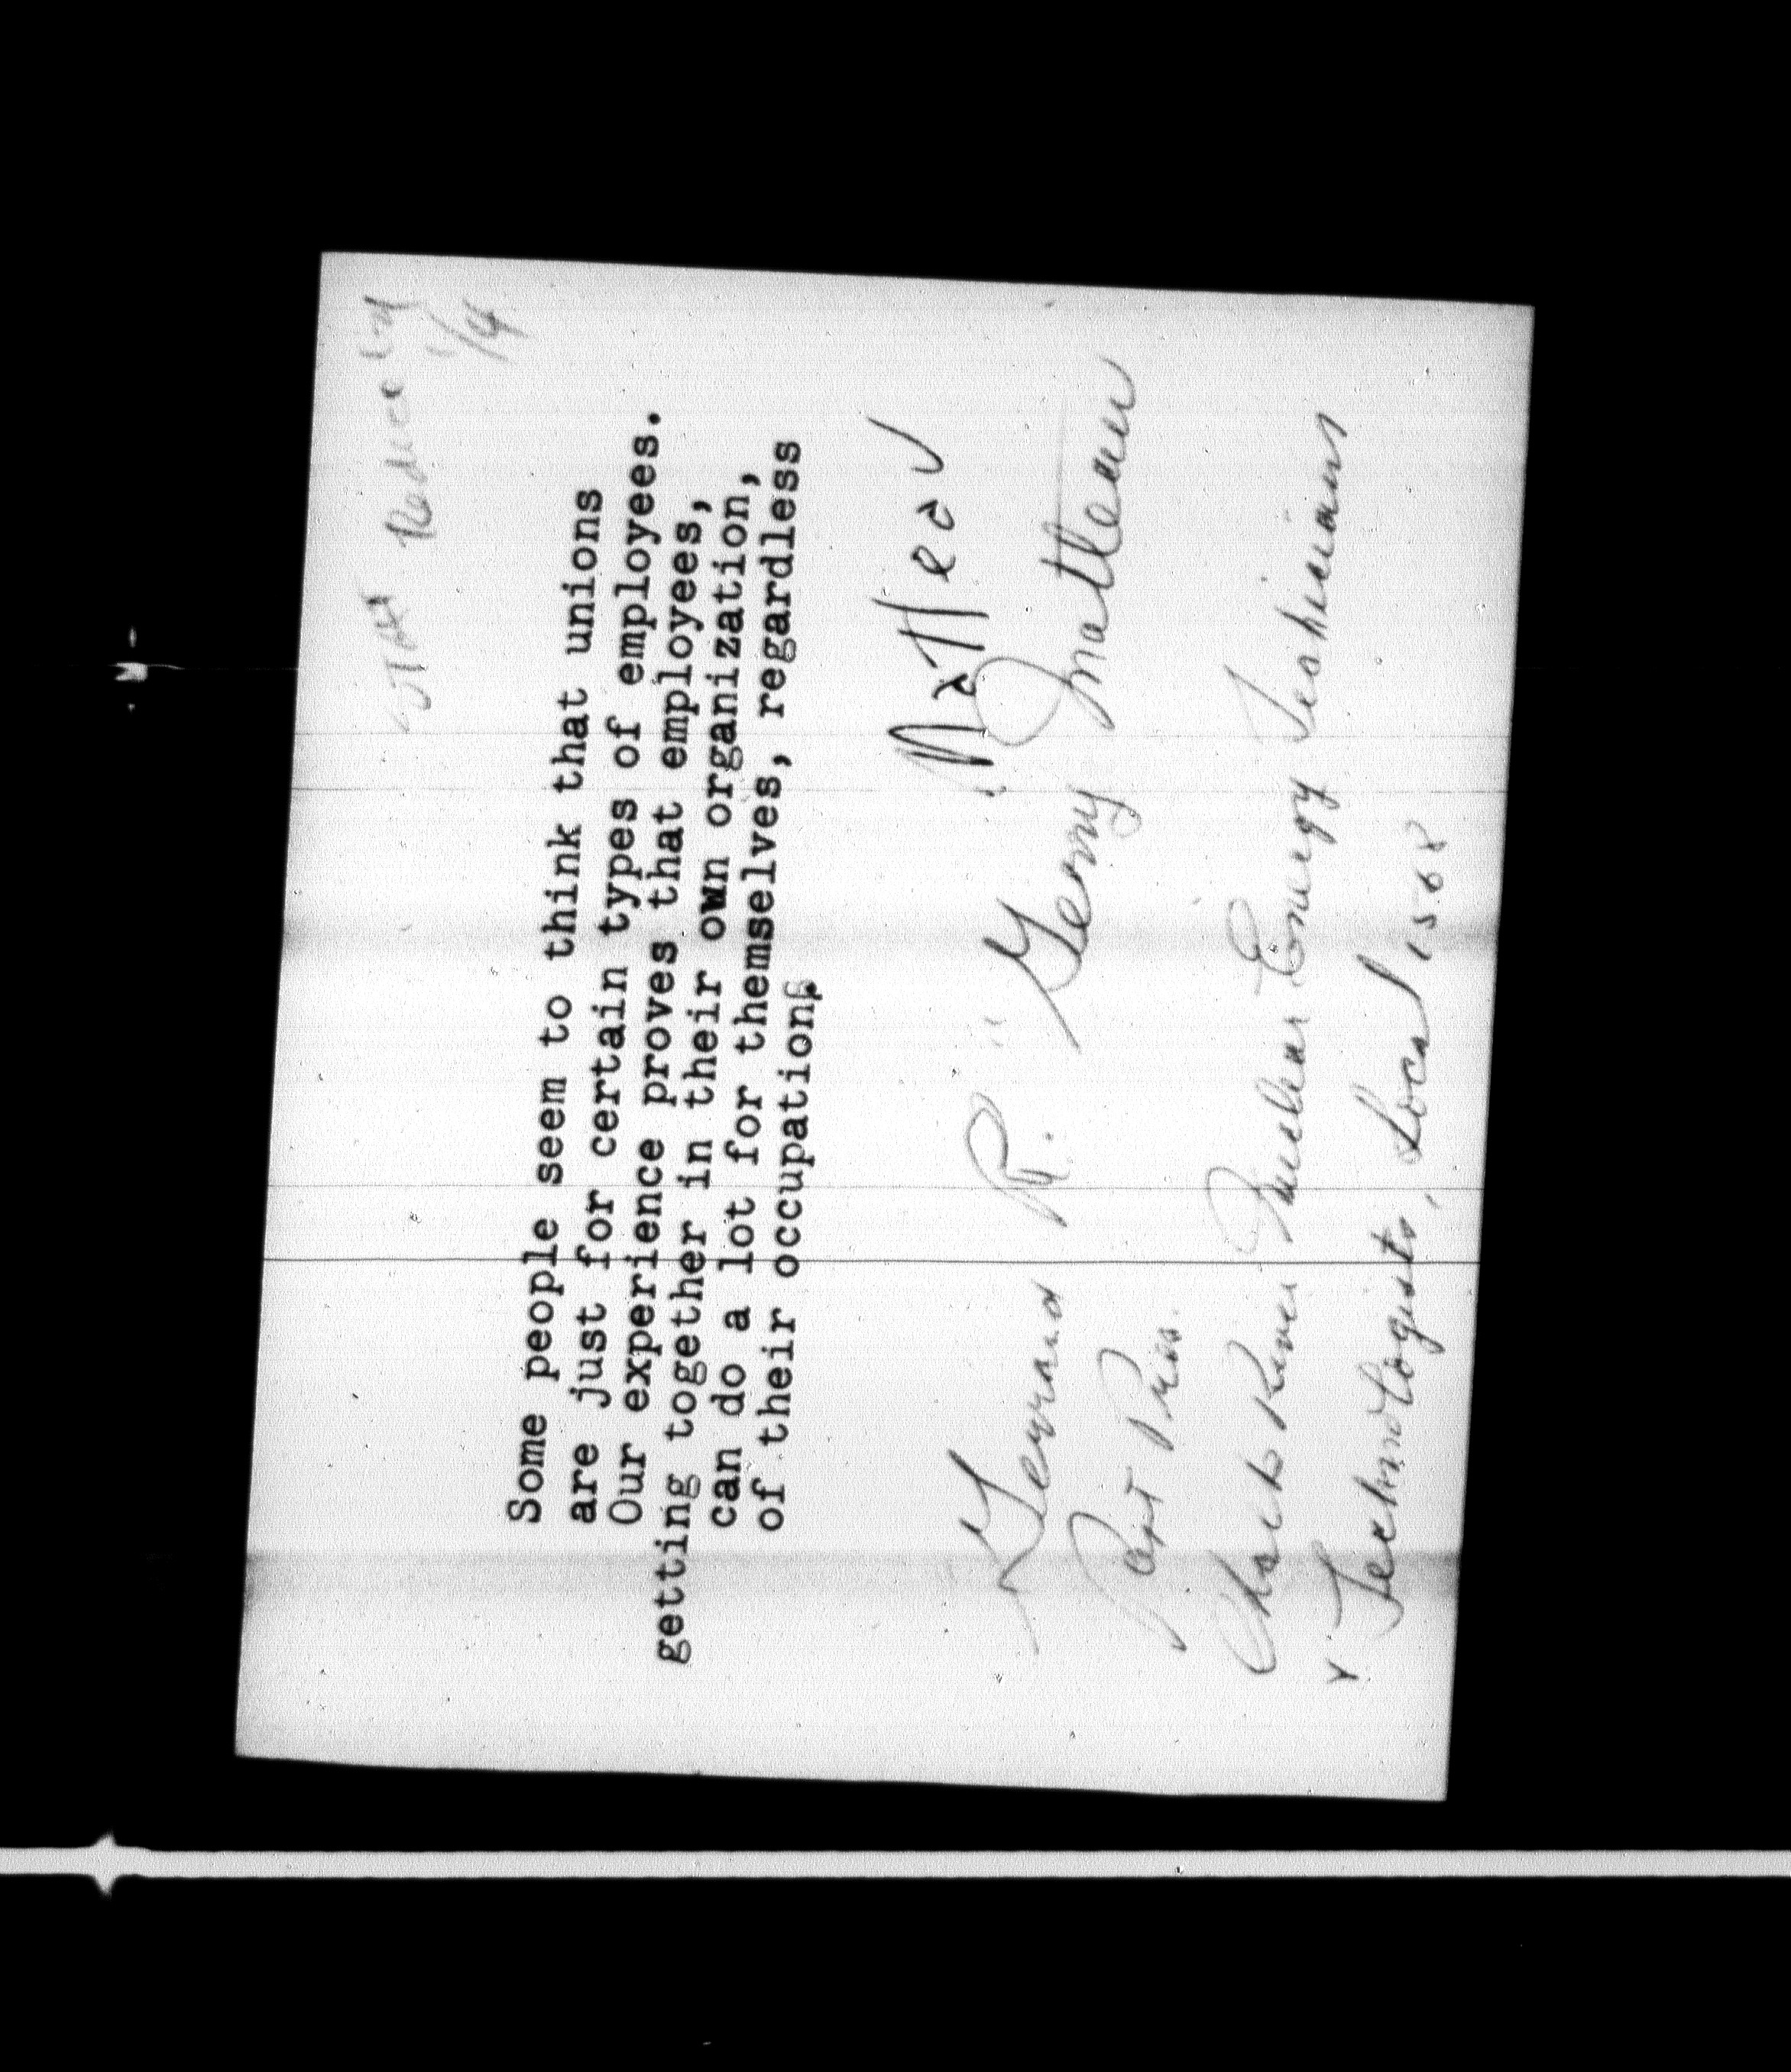 Reduce
1/4
Some people seem to think that unions
are just for certain types of employees.
Our experience proves that employees,
getting together in their own organization,
can do a lot for themselves, regardless
of their occupation.
Matteau
Gerrard R. "Gerry" Matteau
Past Pres.
Chalk River Nuclear Energy Technicians
& Technologists, Local 1568